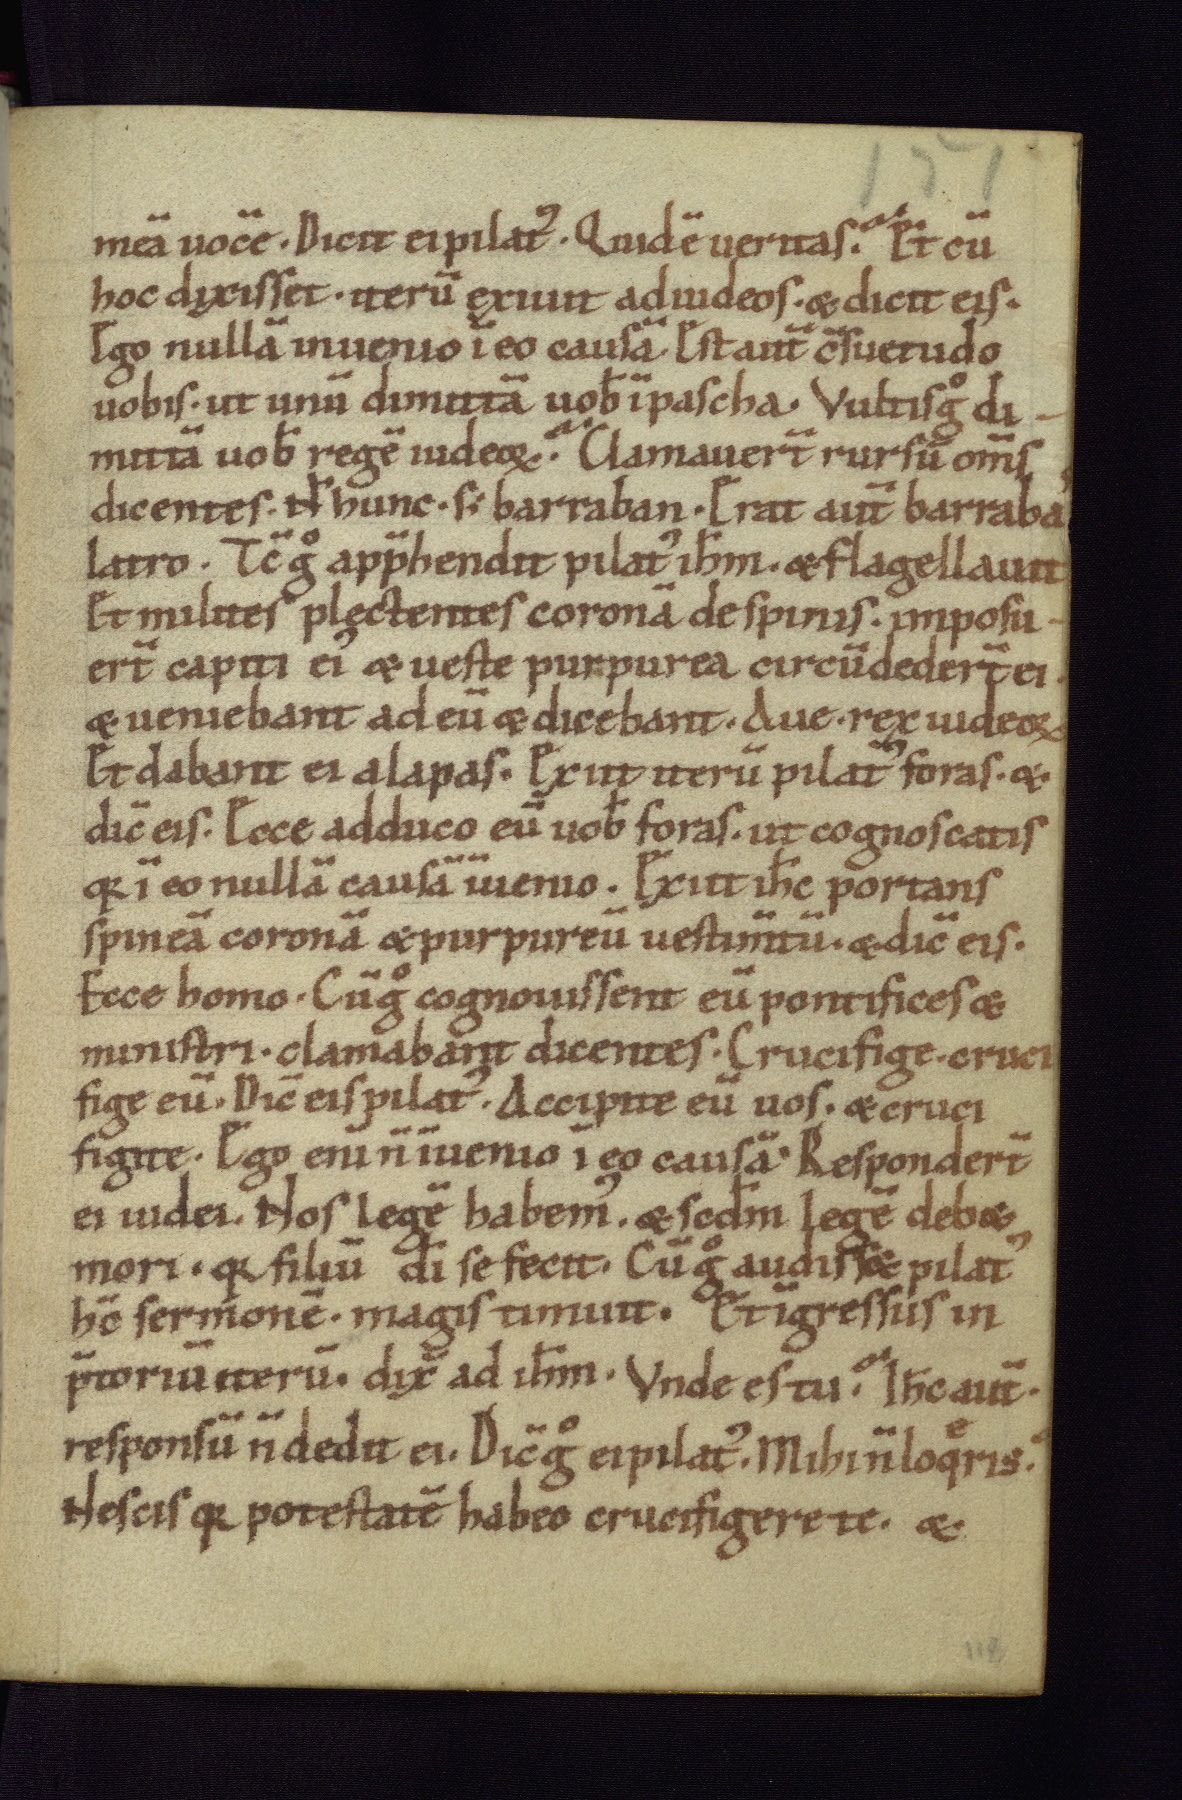 151
meā uocē. Dicit ei pilatꝰ. Quid ē ueritas? Et cū
hoc dixisset. iterū exiuit ad iudeos. & dicit eis.
Ego nullā inuenio ī eo causā. Est aut̄ c̄suetudo
uobis. ut unū dimittā uob̄ ī pascha. Vultis gͦ di-
mittā uob̄ regē iudeoꝝ? Clamauert̄ rursū om̄s
dicentes. N̄ hunc. s; barraban. Erat aut̄ barrabaꝰ
latro. Tc̄ gͦ app̄hendit pilatꝰ ih̄m. & flagellauit
Et milites plectentes coronā de spinis. imposu-
ert̄ capiti eiꝰ & ueste purpurea circūdedert̄ ei.
& ueniebant ad eū & dicebant. Aue. rex iudeoꝝ
Et dabant ei alapas. Exiit iterū pilatꝰ foras. &.
dic̄ eis. Ecce adduco eū uob̄ foras. ut cognoscatis
qꝛ ī eo nullā causā īuenio. Exiit ih̄c portans
spineā coronā & purpureū uestim̄tū. & dic̄ eis.
Ecce homo. Cū gͦ cognouissent eū pontifices &
ministri. clamabant dicentes. Crucifige. cruci
fige eū. Dic̄ eis pilatꝰ. Accipite eū uos. & cruci
figite. Ego eni n̄ īuenio ī eo causā. Respondert̄
ei iudei. Nos legē habemꝰ. & scd̄m legē deb&
mori. qꝛ filiū di̅ se fecit. Cū gͦ audiss& pilatꝰ
hc̄ sermonē. magis timuit. Et īgressus in
p̄toriū iterū. dix̄ ad ih̄m. Vnde es tu? Ih̄c aut̄.
responsū n̄ dedit ei. Dic̄ gͦ ei pilatꝰ. Mihi n̄ loqͤris?
Nescis qꝛ potestatē habeo crucifigere te. &.
118